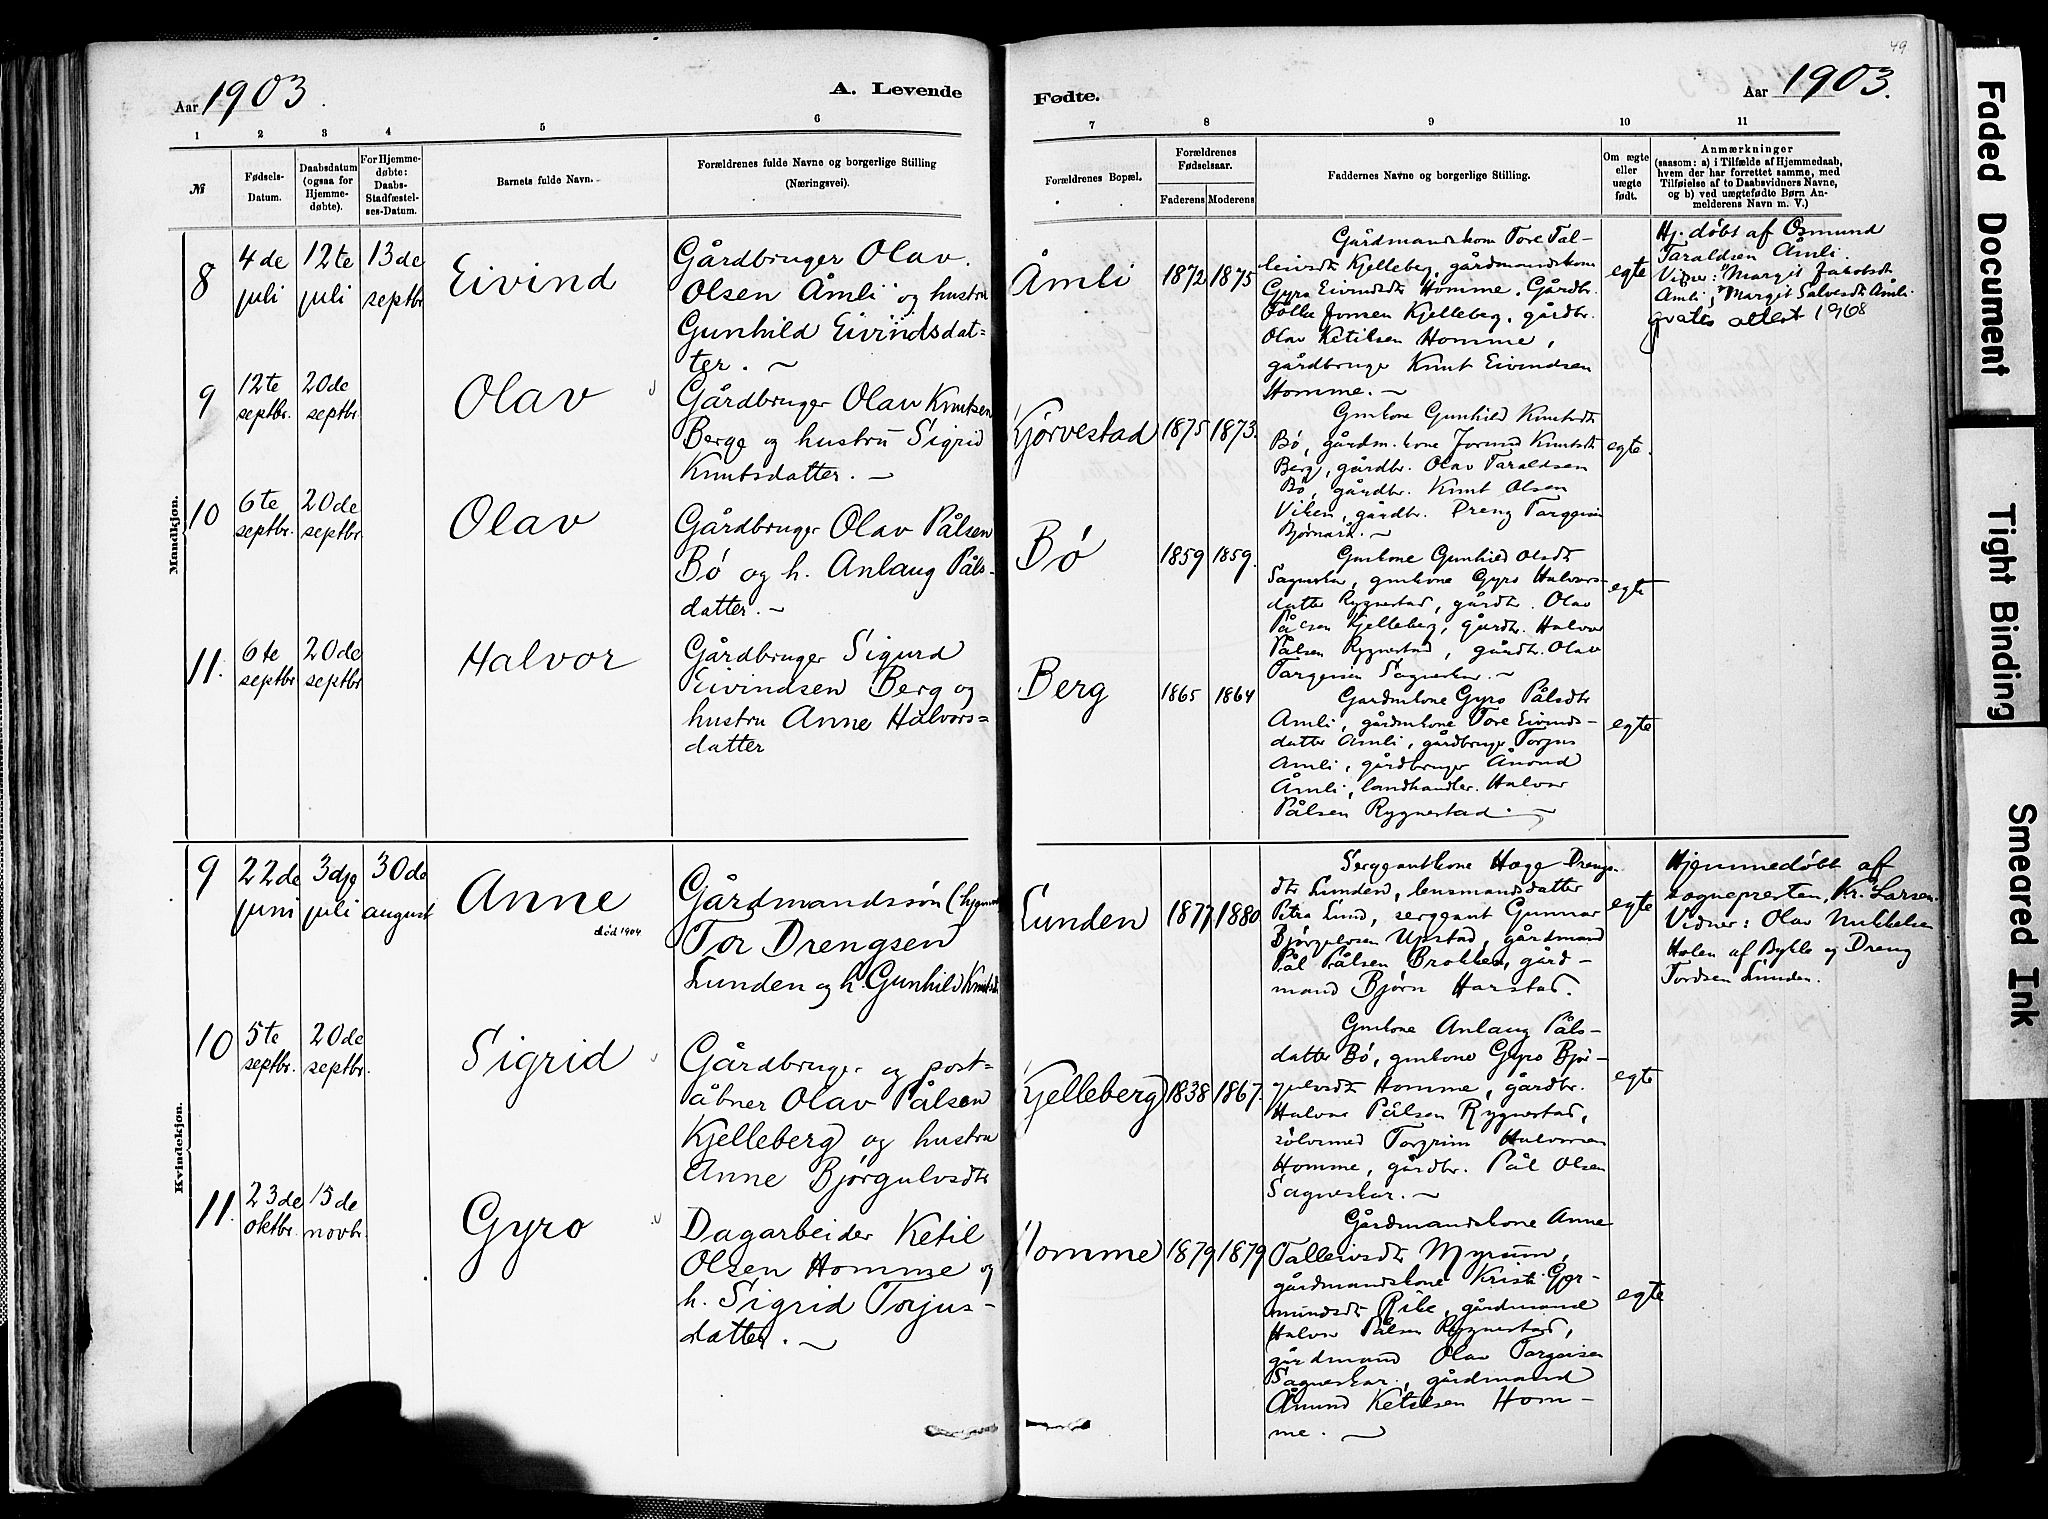 49
Aar 1903.
A. Levende
Fødte.
Aar 1903.
1 2 3 4 5 6 7 8 9 10 11
№
Fødsels-
Datum.
Daabsdatum
(ogsaa for
Hjemme-
døbte).
For Hjemme-
døbte:
Daabs-
Stadfæstel-
ses-Datum.
Barnets fulde Navn.
Forældrenes fulde Navne og borgerlige Stilling
(Næringsvei).
Forældrenes Bopæl.
Forældrenes
Fødselsaar.
Faderens Moderens
Faddernes Navne og borgerlige Stilling.
Om ægte
eller
uægte
født.
Anmærkninger
(saasom: a) i Tilfælde af Hjemmedaab,
hvem der har forrettet samme, med
Tilføielse af to Daabsvidners Navne,
og b) ved uægtefødte Børn An-
melderens Navn m. V.)
Mandkjøn.
8
4de
juli
12te
juli
13de
septbr
Eivind
Gårdbruger Olav
Olsen Åmli og hustru
Gunhild Eivindsdat-
ter. ~
Åmli
1872 1875
Gårdmandskone Tore Tal-
leivsdt Kjelleberg, gårdmandskone
Gyro Eivindsdt Homme, Gårdbr.
Folke Jonsen Kjelleberg, gårdbr.
Olav Ketilsen Homme,
gårdbruger Knut Eivindsen
Homme. ~
egte
Hj. døbt af Osmund
Taraldsen Åmli.
Vidner: Margit Jakobsdt
Åmli, Margit Salvesdt Åmli.
gratis attest 1968
9
12te
septbr.
20de
septbr
Olav
Gårdbruger Olav Knutsen
Berge og hustru Sigrid
Knutsdatter. ~
Kjørvestad
1875 1873.
Gmkone Gunhild Knutsdt
Bø, gårdm.kone Jorund Knutsdt
Berg, gårdbr. Olav Taraldsen
Bø, gårdbr. Knut Olsen
Viken, gårdbr. Dreng Targeisen
Bjørnarå. ~
egte.
10
6te
septbr.
20de
septbr
Olav
Gårdbruger Olav Pålsen
Bø og h. Anlaug Påls-
datter. ~
Bø
1859 1859.
Gmkone Gunhild Olsdt
Sagneskar, gmkone Gyro Halvors-
datter Rygnestad, gårdbr. Olav
Pålsen Kjelleberg, gårdbr. Halvor
Pålsen Rygnestad, gårdbr. Olav
Targeisen Sagneskar. ~
egte
11.
6te
septbr
20de
septbr
Halvor
Gårdbruger Sigurd
Eivindsen Berg og
hustru Anne Halvors=
datter
Berg
1865 1864
Gardmkone Gyro Pålsdtr
Åmli, gårdmkone Tore Eivinds-
datter Åmli, gårdbruger Torjus
Åmli, gårdbruger Ånond
Åmli, landhandler Halvor
Pålsen Rygnestad. ~
egte
Kvindekjøn.
9
22de
juni
3dje
juli
30de
august
Anne
død 1904
Gårdmandssøn
Tor Drengsen
Lunden og h. Gunhild Knutsdt
Lunden
1877 1880
Sergeantkone Hæge Drengs-
dtr Lunden, lensmandsdatter
Petra Lund, sergeant Gunnar
Bjørgulvsen Upstad, gårdmand
Pål Pålsen Brokke, gård-
mand Bjørn Harstad.
egte
Hjemmedøbt af
sognepresten, Kr. Larsen.
Vidner: Olav Mikkelsen
Holen af Bykle og Dreng
Tordsen Lunden.
10
5te
septbr.
20de
septbr.
Sigrid
Gårdbruger og post-
åbner Olav Pålsen
Kjelleberg og hustru
Anne Bjørgulvsdtr
Kjelleberg
1838 1867.
Gmkone Anlaug Påls-
datter Bø, gmkone Gyro Bjør-
gulvsdt Homme, gårdbr.
Halvor Pålsen Rygnestad,
sølvsmed Torgrim Halvorsen
Homme, gårdbr. Pål Olsen
Sagneskar. ~
egte
11.
23de
oktbr.
15de
novbr.
Gyro
Dagarbeider Ketil
Olsen Homme og
h. Sigrid Torjus-
datter. ~
Homme
1879 1879
Gårdmandskone Anne
Talleivsdt Myrum,
gårdmandskone Kristi Gjer-
mundsdt Rike, gårdmand
Halvor Pålsen Rygnestad,
gårdmand Olav Targeisen
Sagneskar, gårdmand
Åmund Ketilsen Hom-
me. ~
egte
Faded Document
Tight Binding
Smeared Ink